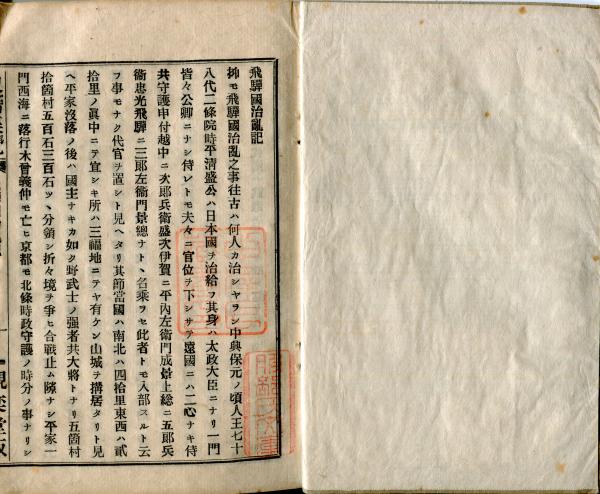 飛驒國治亂記
抑モ飛驒國治亂之事往古ハ何人カ治シヤラン中興保元ノ頃人王七十
八代二條院時平淸盛公ハ日本國ヲ治給フ其身ハ太政大臣ニナリ一門
皆々公卿ニナシ侍レトモ夫々ニ官位ヲ下シサテ遠國ニハ二心ナキ侍
共守護申付越中ニ次郎兵衞盛次伊賀ニ平內左衞門成景上總ニ五郎兵
衞忠光飛驒ニ三郎左衞門景總ナト、名乘ラセ此者トモ入部スルト云
フ事モナク代官ヲ置シト見ヘタリ其節當國ハ南北ハ四拾里東西ハ貳
拾里ノ眞中ニテ宜シキ所ハ三福地ニテヤ有ケン山城ヲ搆居タリト見
ヘ平家沒落ノ後ハ國主ナキカ如ク野武士ノ强者共大將トナリ五箇村
拾箇村五百石三百石ツヽ分領シ折々境ヲ爭ヒ合戰止ム隙ナシ平家一
門西海ニ落行木曾義仲モ亡ヒ京都モ北條時政守護ノ時分ノ事ナリシ